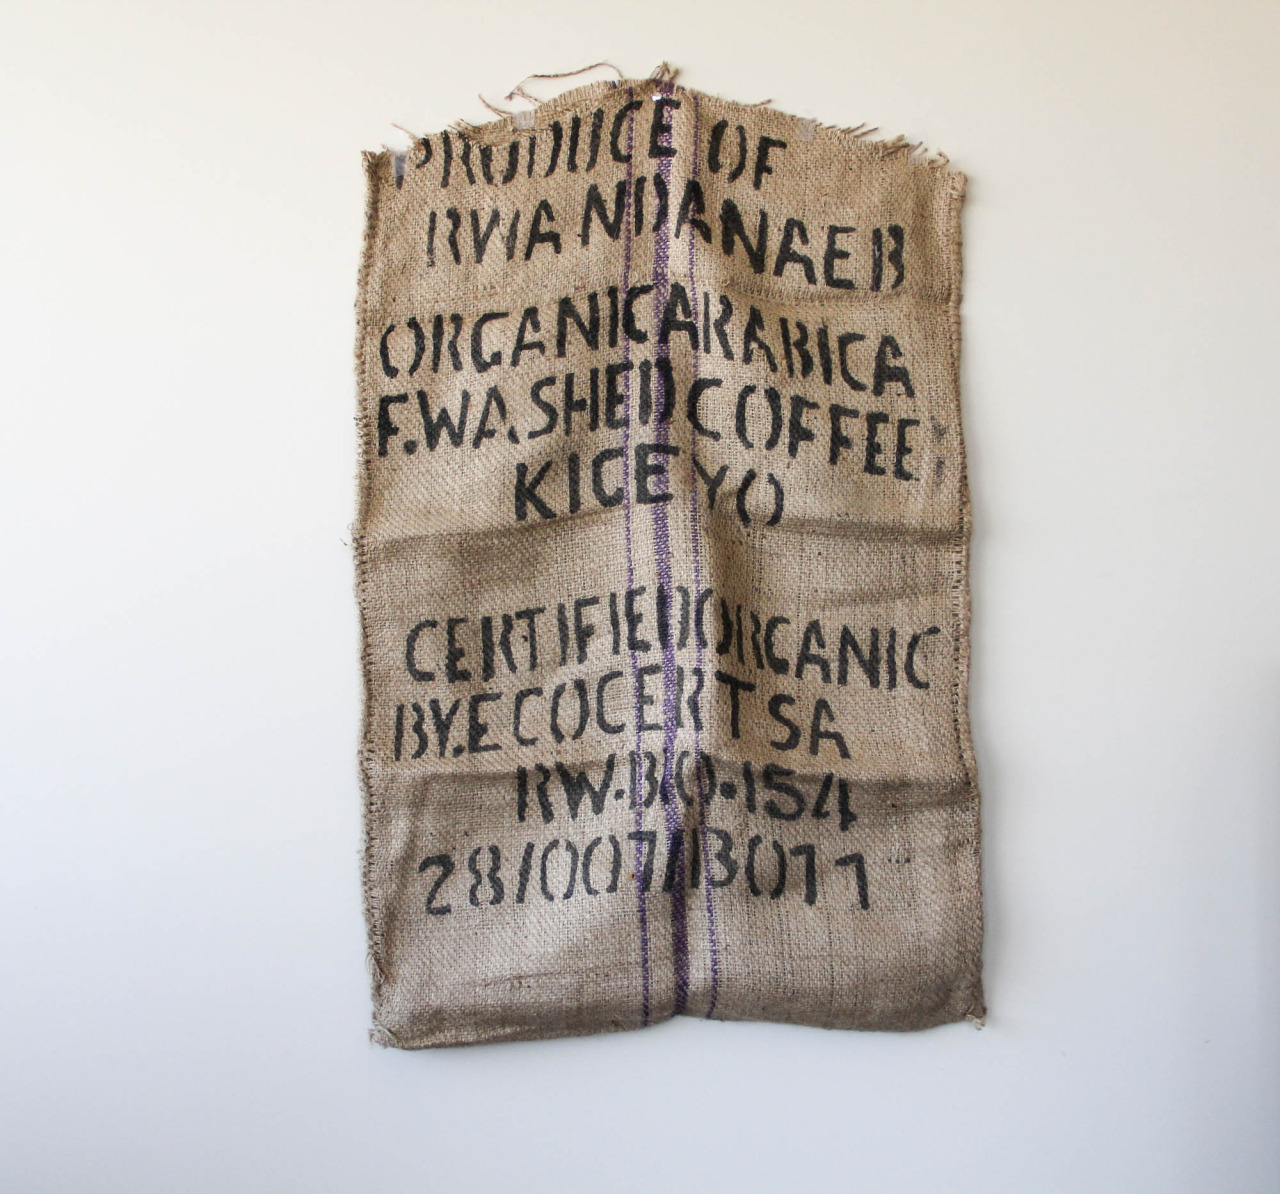 PRODUCE OF
RWANDA NAEB
ORGANIC ARABICA
F.WASHED COFFEE
KICEYO
CERTIFIED ORGANIC
BY.ECOCERT SA
RW-BIO-154
28/007/13011